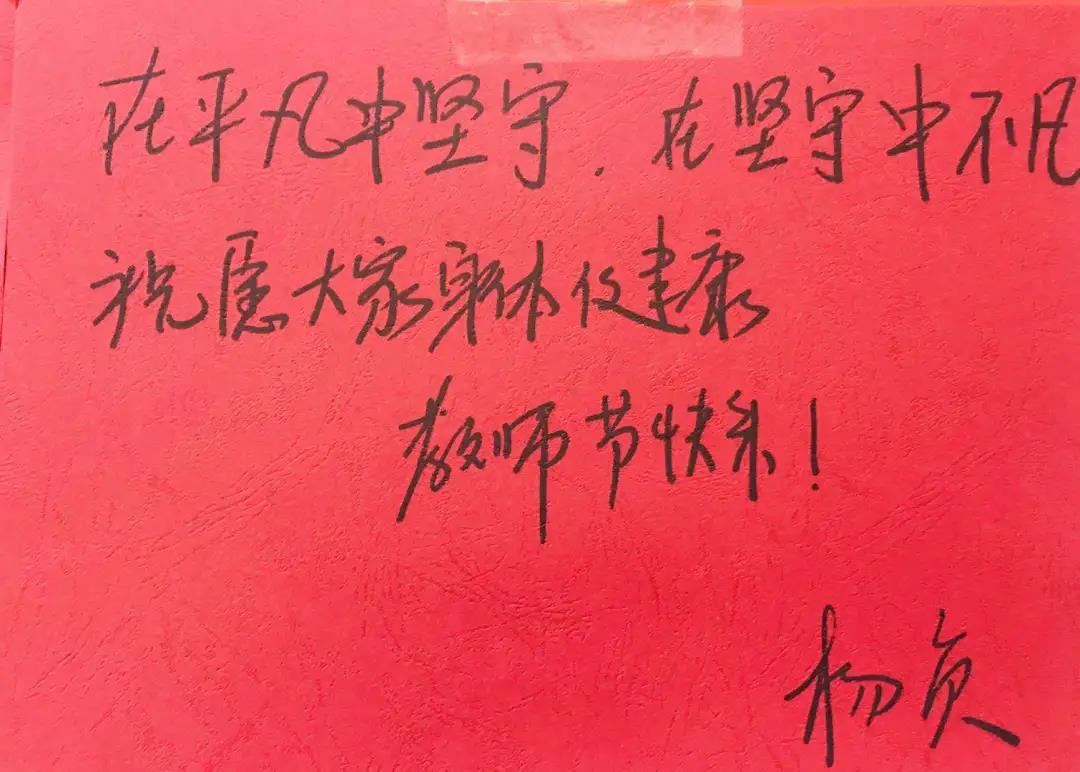 在平凡中坚守.在坚守中不凡
祝愿大家身体健康
教师节快乐!
杨贞